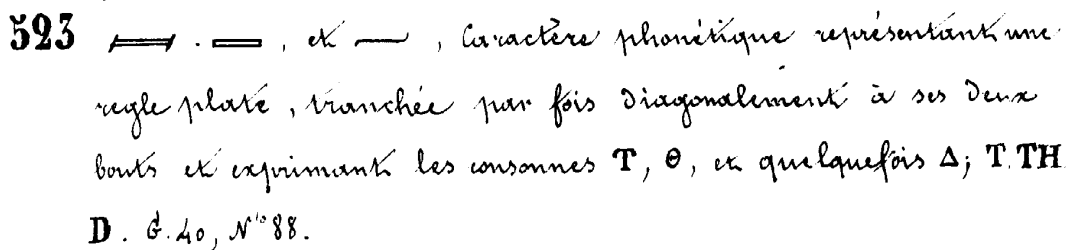 523 , et , Caractère phonétique représentant une
regle plate, tranchée par fois diagonalement à ses deux
bouts et exprimant les consonnes T, Θ, et quelquefois Δ; T. TH
D. G. 40, N° 88.